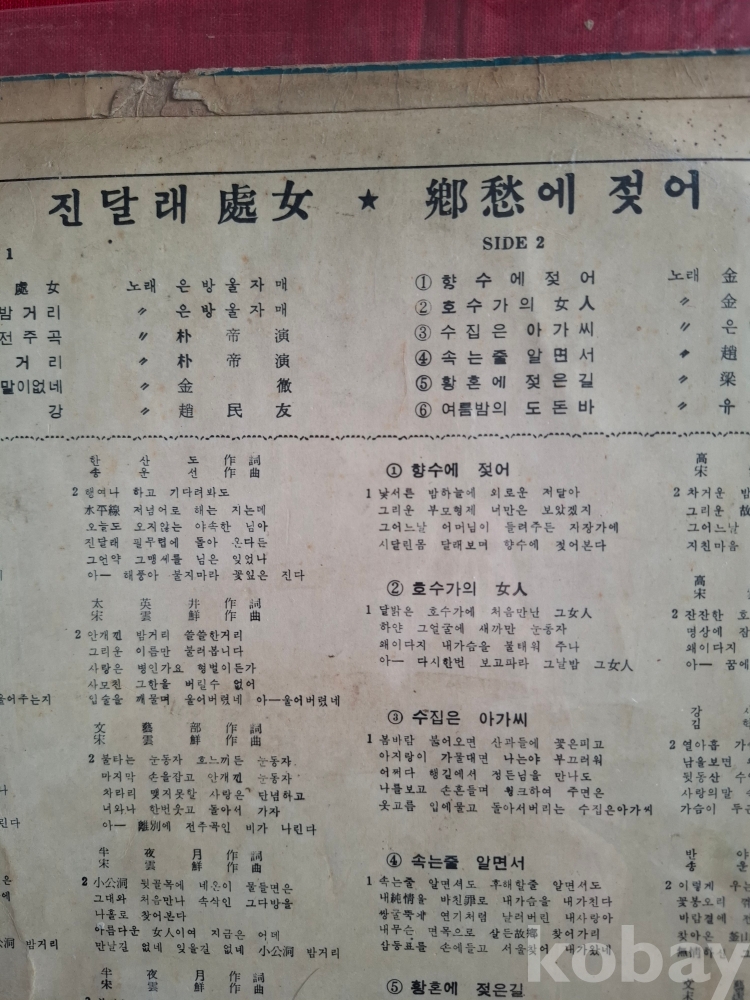 진달래 處女 ★ 鄕愁에 젖어
1
處女 노래 은방울자매
밤거리 〃 은방울자매
전주곡 〃 朴帝演
거리 〃 朴帝演
말이없네 〃 金徹
강 〃 趙民友
SIDE 2
① 향수에 젖어 노래 金
② 호수가의 女人 〃 金
③ 수집은 아가씨 〃 은
④ 속는줄 알면서 〃 趙
⑤ 황혼에 젖은길 〃 梁
⑥ 여름밤의 도돈바 〃 유
한산도 作詞
송운선 作曲
2 행여나 하고 기다려봐도
水平線 저넘어로 해는 지는데
오늘도 오지않는 야속한 님아
진달래 필무렵에 돌아 온다든
그언약 그맹세를 님은 잊었나
아— 해풍아 불지마라 꽃잎은 진다
太英井 作詞
宋雲鮮 作曲
2 안개낀 밤거리 쓸쓸한거리
그리운 이름만 불러봅니다
사랑은 병인가요 형벌이든가
사모친 그한을 버릴수 없어
입술을 깨물며 울어버렸네 아—울어버렸네
울어주는지
文藝部 作詞
宋雲鮮 作曲
2 불타는 눈동자 흐느끼든 눈동자
마지막 손을잡고 안개낀 눈동자
차라리 맺지못할 사랑은 단념하고
너와나 한번웃고 돌아서 가자
아— 離別에 전주곡인 비가 나린다
린다
半夜月 作詞
宋雲鮮 作曲
2 小公洞 뒷골목에 네온이 물들면은
그대와 처음만나 속삭인 그다방을
나홀로 찾어본다
아름다운 女人이여 지금은 어데
만날길 없네 잊을길 없네 小公洞 밤거리
公洞 밤거리
半夜月 作詞
宋雲鮮 作曲
① 향수에 젖어
高
宋
1 낯서른 밤하늘에 외로운 저달아
그리운 부모형제 너만은 보았겠지
그어느날 어머님이 들려주든 자장가에
시달린몸 달래보며 향수에 젖어본다
2 차거운 밤
그리운 故
그어느날
지친마음
② 호수가의 女人
高
宋
1 달밝은 호수가에 처음만난 그女人
하얀 그얼굴에 새까만 눈동자
왜이다지 내가슴을 불태워 주나
아— 다시한번 보고파라 그날밤 그女人
2 잔잔한 호
명상에 잠
왜이다지
아— 꿈에
③ 수집은 아가씨
강
김
1 봄바람 불어오면 산과들에 꽃은피고
아지랑이 가물대면 나는야 부끄러워
어쩌다 행길에서 정든님을 만나도
나를보고 손흔들며 윙크하여 주면은
웃고름 입에물고 돌아서버리는 수집은아가씨
2 열아홉 가
남을보면
뒷동산 수
사랑의말
가슴이 두근
④ 속는줄 알면서
반
송
1 속는줄 알면서도 후해할줄 알면서도
내純情을 바친罪로 내가슴을 내가친다
쌍굴뚝게 연기처럼 날러버린 내사랑아
내무슨 면목으로 살든故鄕 찾어가리
삼동표를 손에들고 서울찾아 내가왔네
2 이렇게 우는
꽃봉오리
바람결에
찾아온 釜山
⑤ 황혼에 젖은길
kobay